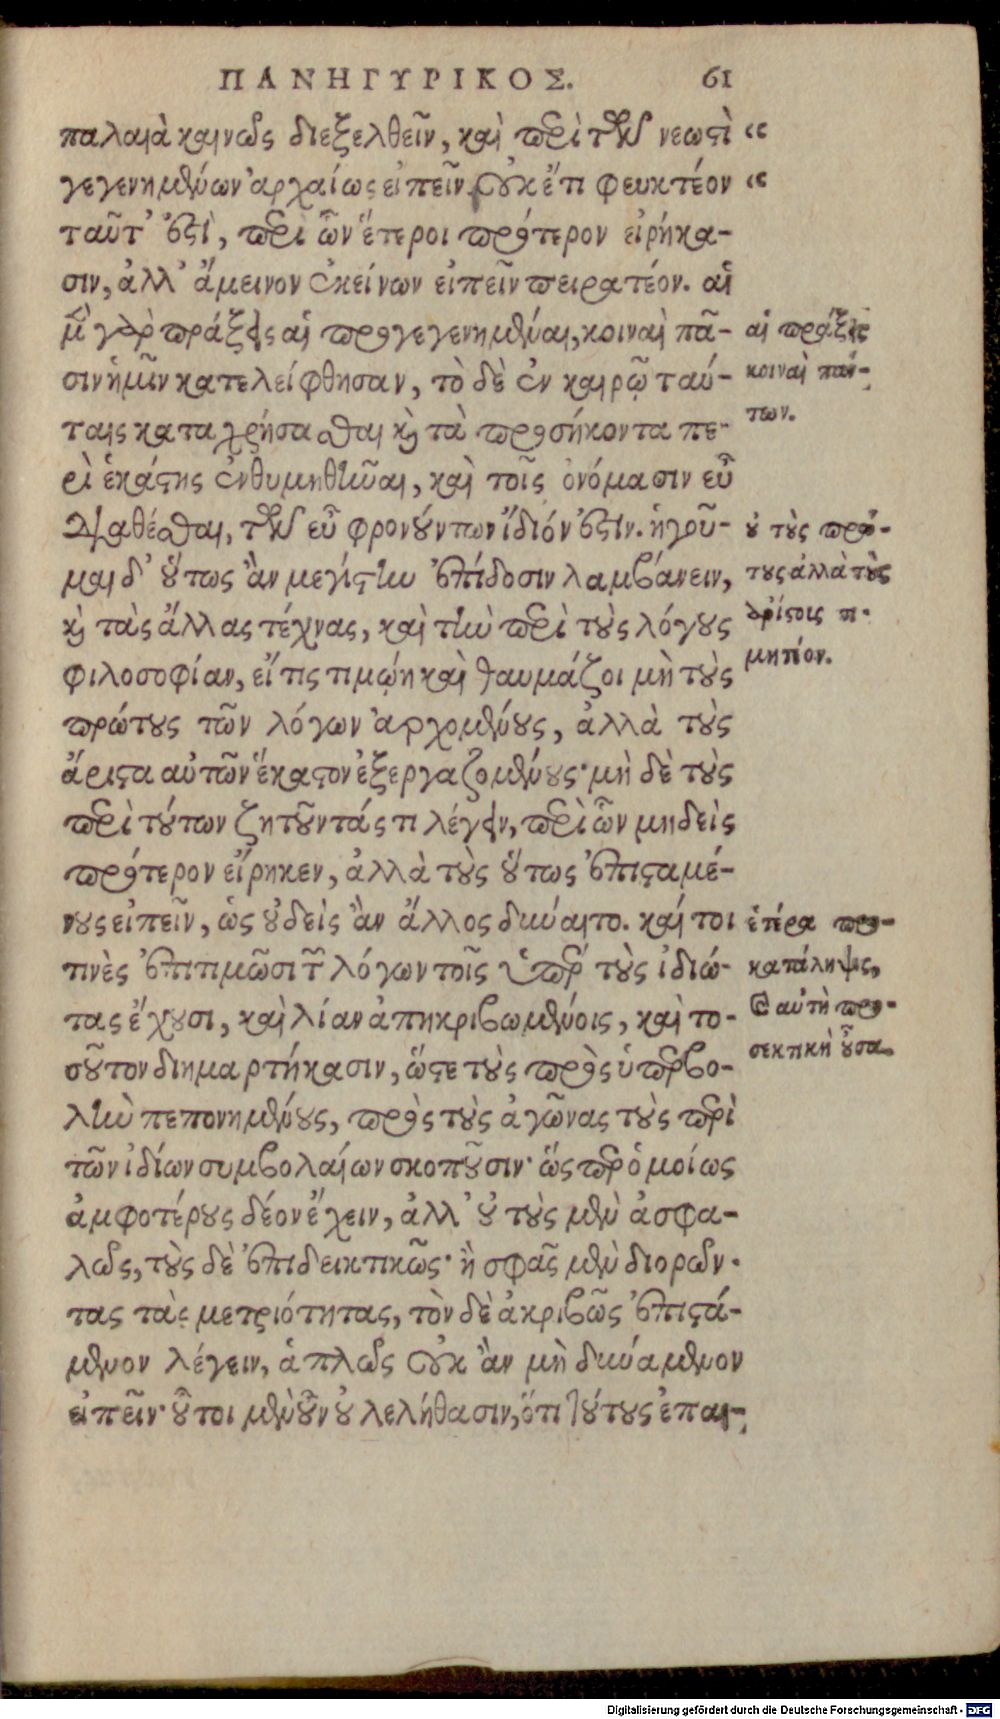 ΠΑΝΗΓΥΡΙΚΟΣ. 61
παλαιὰ καινῶς διεξελθεῖν, καὶ περὶ τῶν νεωστὶ "
γεγενημένων ἀρχαίως εἰπεῖν. Οὐκ ἔτι φευκτέον "
ταῦτ' ἐστὶ, περὶ ὧν ἕτεροι πρότερον εἰρήκα-
σιν, ἀλλ' ἄμεινον ἐκείνων εἰπεῖν πειρατέον. αἱ
μὲν γὰρ πράξεις αἱ προγεγενημέναι, κοιναὶ πᾶ-
σιν ἡμῖν κατελείφθησαν, τὸ δὲ ἐν καιρῷ ταύ-
ταις καταχρήσασθαι καὶ τὰ προσήκοντα πε-
ρὶ ἑκάστης ἐνθυμηθῆναι, καὶ τοῖς ὀνόμασιν εὖ
διαθέσθαι, τῶν εὖ φρονούντων ἴδιόν ἐστιν. ἡγοῦ-
μαι δ' οὕτως ἂν μεγίστην ἐπίδοσιν λαμβάνειν,
καὶ τὰς ἄλλας τέχνας, καὶ τὴν περὶ τοὺς λόγους
φιλοσοφίαν, εἴ τις τιμῴη καὶ θαυμάζοι μὴ τοὺς
πρώτους τῶν λόγων ἀρχομένους, ἀλλὰ τοὺς
ἄριστα αὐτῶν ἕκαστον ἐξεργαζομένους· μὴ δὲ τοὺς
περὶ τούτων ζητοῦντάς τι λέγειν, περὶ ὧν μηδεὶς
πρότερον εἴρηκεν, ἀλλὰ τοὺς οὕτως ἐπισταμέ-
νους εἰπεῖν, ὡς οὐδεὶς ἂν ἄλλος δύναιτο. καίτοι
τινὲς ἐπιτιμῶσι τῶν λόγων τοῖς ὑπὲρ τοὺς ἰδιώ-
τας ἔχουσι, καὶ λίαν ἀπηκριβωμένοις, καὶ το-
σοῦτον διημαρτήκασιν, ὥστε τοὺς πρὸς ὑπερβο-
λὴν πεπονημένους, πρὸς τοὺς ἀγῶνας τοὺς περὶ
τῶν ἰδίων συμβολαίων σκοποῦσιν· ὥσπερ ὁμοίως
ἀμφοτέρους δέον ἔχειν, ἀλλ' οὐ τοὺς μὲν ἀσφα-
λῶς, τοὺς δὲ ἐπιδεικτικῶς· ἢ σφᾶς μὲν διορῶν-
τας τὰς μετριότητας, τὸν δὲ ἀκριβῶς ἐπιστά-
μενον λέγειν, ἁπλῶς οὐκ ἂν μὴ δυνάμενον
εἰπεῖν· οὗτοι μὲν οὖν οὐ λελήθασιν, ὅτι τούτους ἐπαι-
αἱ πράξεις
κοιναὶ πάν-
των.
οὐ τοὺς πρώ-
τους ἀλλὰ τοὺς
ἀρίστοις τι-
μητέον.
ἑτέρα προ-
κατάληψις,
καὶ αὐτὴ προ-
σεκτικὴ οὖσα.
Digitalisierung gefördert durch die Deutsche Forschungsgemeinschaft - DFG